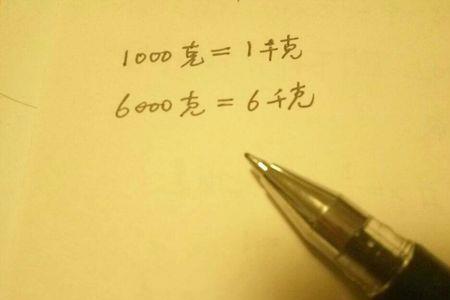 1000克=1千克
6000克=6千克